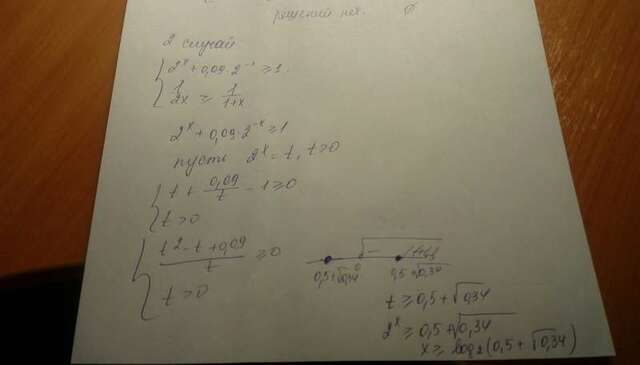 решений нет. ∅
2 случай
{ 2^x + 0,09 · 2^-x ≥ 1.
1/2x ≥ 1/1+x
2^x + 0,09 · 2^-x ≥ 1
пусть 2^x = t, t>0
{ t + 0,09/t - 1 ≥ 0
t > 0
{ t^2 - t + 0,09 / t ≥ 0
t > 0
0,5+√0,34 0 0,5+√0,34
t ≥ 0,5 + √0,34
2^x ≥ 0,5 + √0,34
x ≥ log2(0,5 + √0,34)